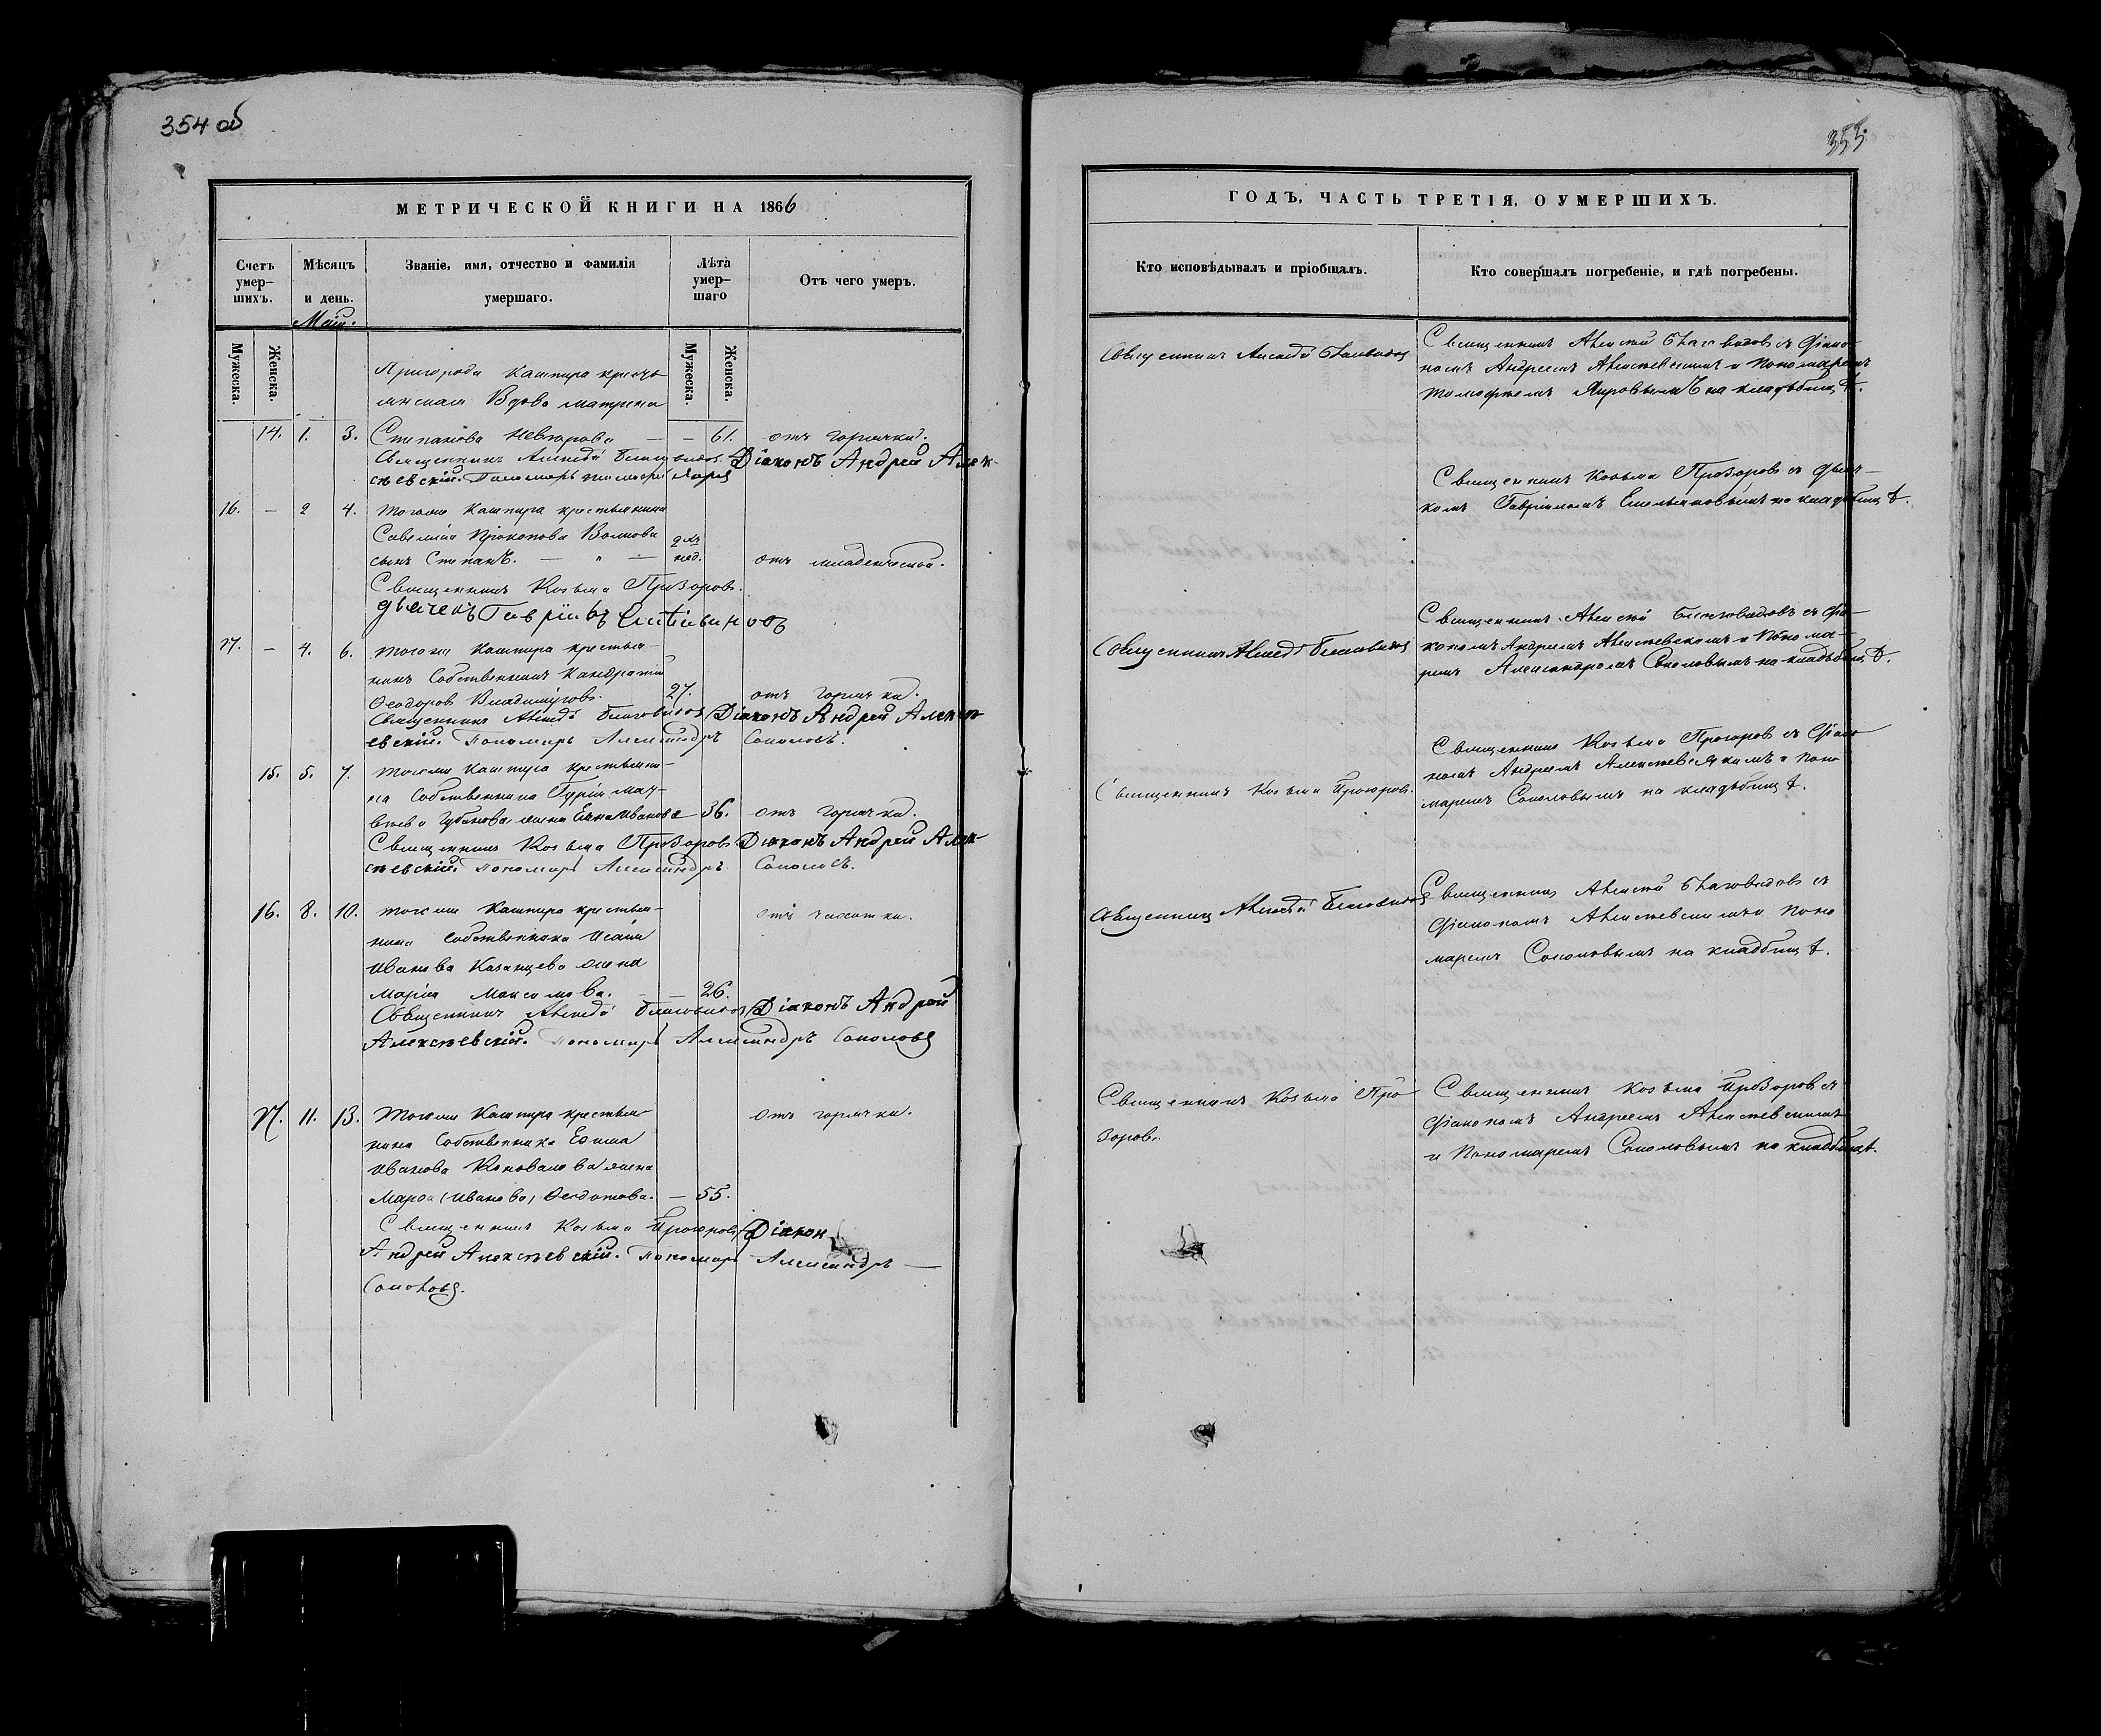 354 об
МЕТРИЧЕСКОЙ КНИГИ НА 1866
Счетъ умер-шихъ.
Мѣсяцъ и день.
Званіе, имя, отчество и фамилія умершаго.
Лѣта умер-шаго
Отъ чего умеръ.
Май.
Мужеска. Женска. Мужеска. Женска.
Пригорода Кашпира кресть
янская Вдова Матрена
14. 1. 3. Степанова — — 61. отъ горячки.
Священникъ Алексѣй Благовидовъ Діаконъ Андрей Алек-
сѣевскій. Пономарь
16. — 2 4. Тогоже Кашпира крестьянина
Савелія Прокопова Волкова
сынъ Степанъ. — " — 2хъ нед. отъ младенческой.
Священникъ Козьма Прозоровъ.
дьячекъ Гавріилъ
17. — 4. 6. Тогоже Кашпира крестья-
нинъ Собственникъ Кандратій
Ѳеодоровъ 27. отъ горячки.
Священникъ Алексѣй Благовидовъ Діаконъ Андрей Алексѣ
евскій. Пономарь Александръ Соколовъ.
15. 5. 7. Тогоже Кашпира крестьяни-
на Собственника Гурія Мат-
вѣева Губанова жена Иванова 36. отъ горячки.
Священникъ Козьма Прозоровъ Діаконъ Андрей Алек-
сѣевскій. Пономарь Александръ Соколовъ.
16. 8. 10. Тогоже Кашпира крестья- отъ чахотки.
нина Собственника Исаіи
Иванова Казанцева жена
Марія Максимова. — — 26.
Священникъ Алексѣй Благовидовъ Діаконъ Андрей
Алексѣевскій. Пономарь Александръ Соколовъ
17. 11. 13. Тогоже Кашпира крестья- отъ горячки.
нина Собственника Ефима
Иванова Коновалова жена
Марѳа (Иванова) Ѳедотова. — 55.
Священникъ Козьма Прозоровъ Діакон
Андрей Алексѣевскій. Пономарь Александръ —
Соколовъ.
355.
ГОДЪ, ЧАСТЬ ТРЕТІЯ, О УМЕРШИХЪ.
Кто исповѣдывалъ и пріобщалъ.
Кто совершалъ погребеніе, и гдѣ погребены.
Священникъ Алексѣй Благовидовъ
Священникъ Алексѣй Благовидовъ съ Діако-
номъ Андреемъ Алексѣевскимъ и Пономаремъ
на кладбищѣ.
Священникъ Козьма Прозоровъ съ Дьяч-
комъ Гавріиломъ на кладбищѣ.
Священникъ Алексѣй Благовидовъ
Священникъ Алексѣй Благовидовъ съ Діа-
кономъ Андреемъ Алексѣевскимъ и Понома-
ремъ Александромъ Соколовымъ на кладбищѣ.
Священникъ Козьма Прозоровъ.
Священникъ Козьма Прозоровъ съ Діако
номъ Андреемъ Алексѣевскимъ и Поно
маремъ Соколовымъ на кладбищѣ.
Священникъ Алексѣй Благовидовъ
Священникъ Алексѣй Благовидовъ съ
Діакономъ Алексѣевскимъ и Поно
маремъ Соколовымъ на кладбищѣ.
Священникъ Козьма Про
зоровъ.
Священникъ Козьма Прозоровъ съ
Діакономъ Андреемъ Алексѣевскимъ
и Пономаремъ Соколовымъ на кладбищѣ.